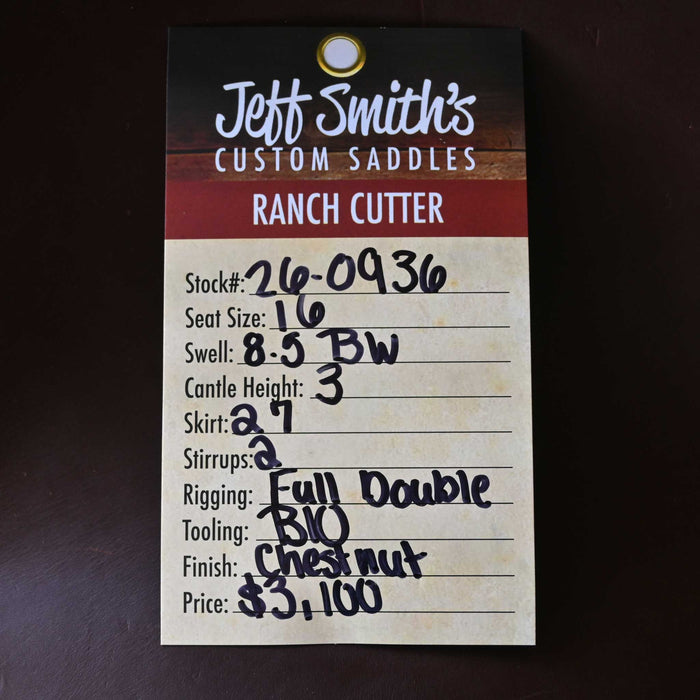 Jeff Smith's
CUSTOM SADDLES
RANCH CUTTER
Stock#: 26-0936
Seat Size: 16
Swell: 8.5 BW
Cantle Height: 3
Skirt: 27
Stirrups: 2
Rigging: Full Double
Tooling: B10
Finish: Chestnut
Price: $3,100